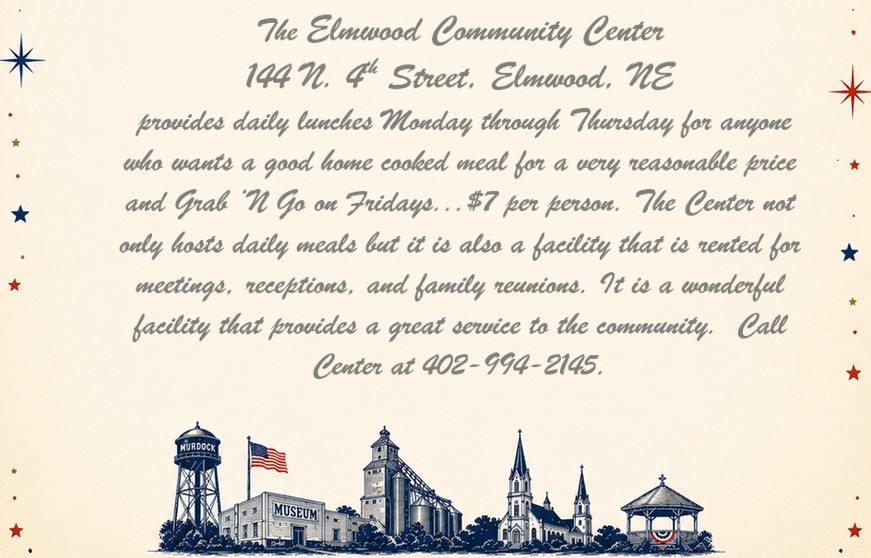 The Elmwood Community Center
144 N. 4th Street, Elmwood, NE
provides daily lunches Monday through Thursday for anyone
who wants a good home cooked meal for a very reasonable price
and Grab 'N Go on Fridays...$7 per person. The Center not
only hosts daily meals but it is also a facility that is rented for
meetings, receptions, and family reunions. It is a wonderful
facility that provides a great service to the community. Call
Center at 402-994-2145.
MURDOCK
MUSEUM